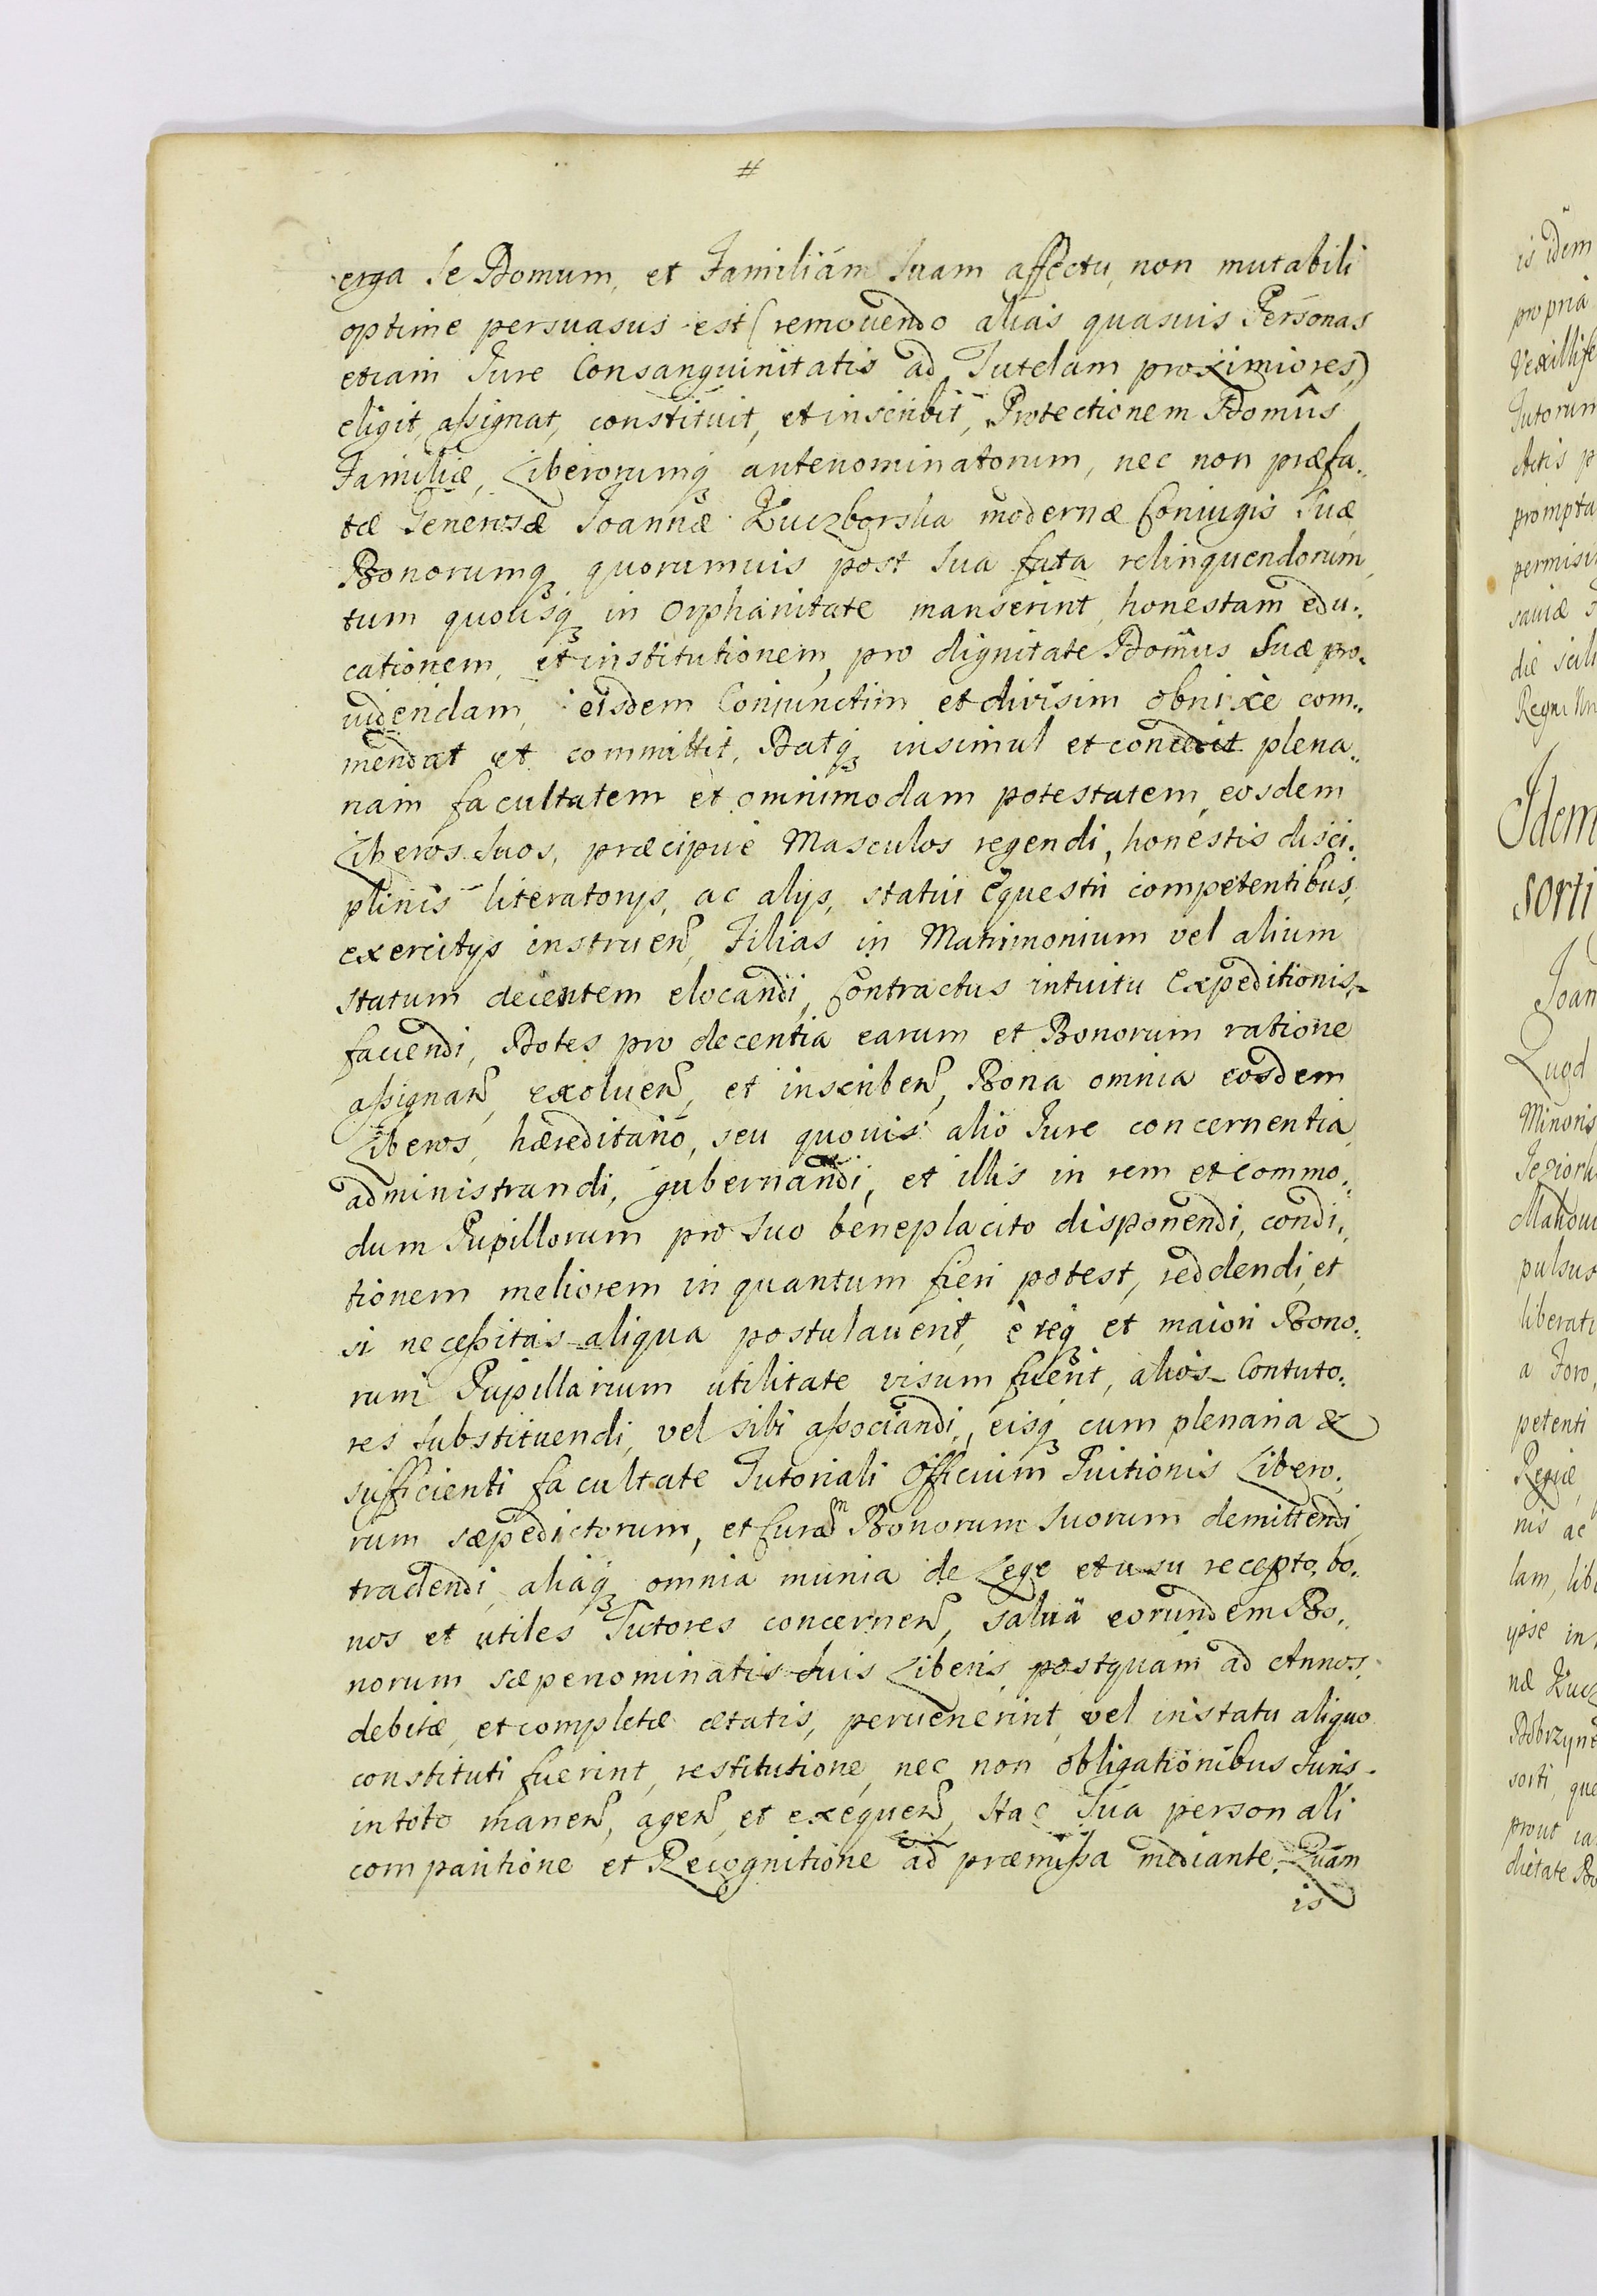 #
erga se Domum, et Familiam suam affectu, non mutabili
optime persuasus est (removendo alias quasuis Personas
etiam Jure Consanguinitatis ad Tutelam proximiores)
eligit, assignat, constituit, et inscribit, Protectionem Domûs
Familiæ, Liberorumq3 antenominatorum, nec non præfa..
tæ Generosæ Joannæ Kuczborska modernæ Coniugis suæ
Bonorumq3 quorumuis post sua fata relinquendorum,
tum quousq3 in Orphanitate manserint, honestam edu..
cationem, et institutionem, pro dignitate Domus suæ pro.
uidendam, eisdem Coniunctim et divisim obnixè com..
mendat et committit. Datq3 insimul et concedit plena..
nam facultatem et omnimodam potestatem, eosdem
Liberos suos, præcipuè Masculos regendi, honestis disci.
plinis literatorys, ac alys, statui Equestri competentibus,
exercitys instruen, Filias in Matrimonium vel alium
statum decentem elocandi, Contractus intuitu Expeditionis
faciendi, Dotes pro decentia earum et Bonorum ratione
assignan, exoluen, et inscriben, Bona omnia eosdem
Liberos, hæreditario, seu quouis alio Jure concernentia,
administrandi, gubernandi, et illis in rem et commo..
dum Pupillorum pro suo beneplacito disponendi, condi..
tionem meliorem in quantum fieri potest, reddendi, et
si necessitas aliqua postulauerit, è req3 et maiori Bono..
rum Pupillarium utilitate visum fuerit, alios Contuto..
res substituendi, vel sibi associandi, eisq3 cum plenaria &
sufficienti facultate Tutoriali Officium Tuitionis Libero..
rum sæpedictorum, et Curam Bonorum suorum demittendi,
tradendi, aliaq3 omnia munia de Lege et usu recepto, bo..
nos et utiles Tutores concernen, salua eorundem Bo..
norum sæpenominatis suis Liberis postquam ad Annos
debitæ, et completæ ætatis, peruenerint, vel in statu aliquo
constituti fuerint, restitutione, nec non obligationibus Juris
in toto manen, agen, et exequen, Hac sua personali
comparitione et Recognitione ad præmissa mediante. Quam
is
is idem
propria
Vexillife
Tutorum
Actis p
prompta
permisi
die scili
Idem
sorti
Joan
Quod
Minoris
pulsus
liberati
a Foro,
petenti
Regiæ
nis ac
lam, lib
ipse in
næ Kucz
Dobrzyn
sorti, que
prout